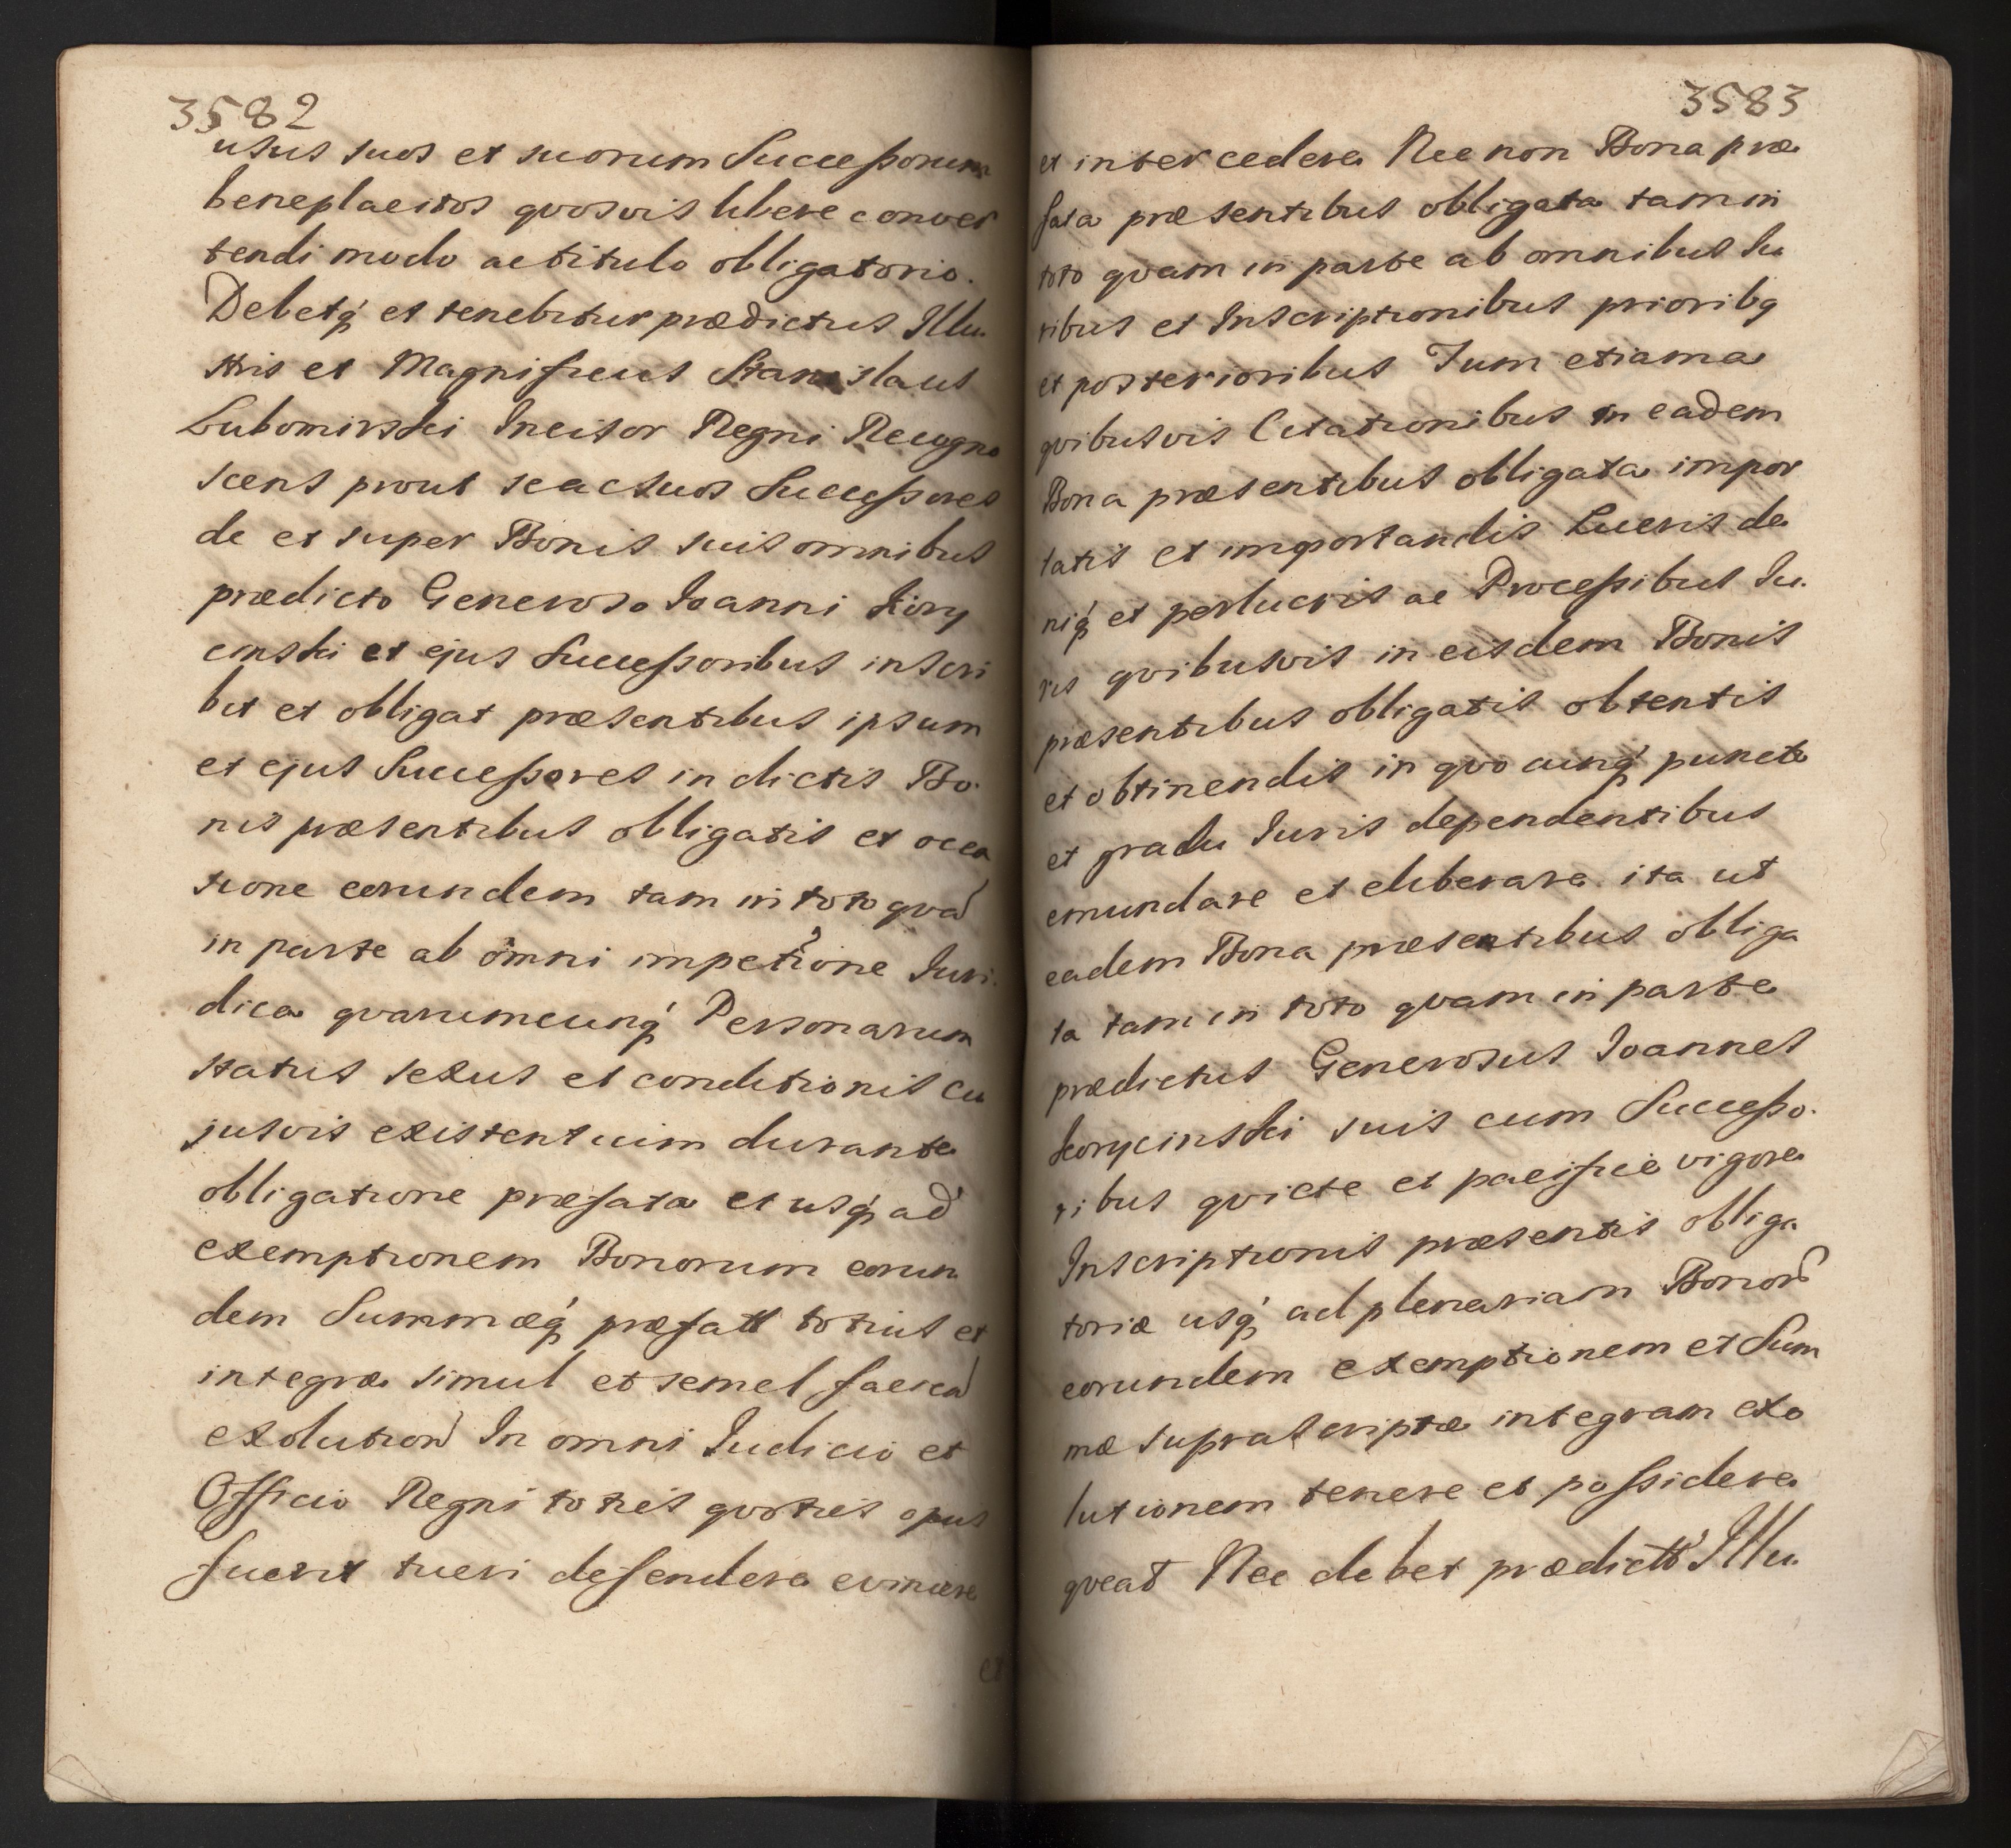 3582
usus suos et suorum Successorum
beneplacitos qvosvis libere conver
tendi modo ac titulo obligatorio.
Debetq́ et tenebitur prædictus Illu
stris et Magnificus Stanislaus
Lubomirski Incisor Regni Recogno
scens prout se ac suos Successores
de et super Bonis suis omnibus
prædicto Generoso Ioanni Kory
cinski et ejus Successoribus inscri
bit et obligat præsentibus ipsum
et ejus Successores in dictis Bo
nis præsentibus obligatis et occa
sione eorundem tam in toto qvã
in parte ab omni impetitione Iuri
dica qvarumcunq́ Personarum
status sexus et conditionis cu
jusvis existentium durante
obligatione præfata et usq́ ad
exemptionem Bonorum eorun
dem Summæq́ præfatt totius et
integræ simul et semel faciend
exolution In omni Iudicio et
Officio Regni toties qvoties opus
fuerit tueri defendere evincere
et
3583
et intercedere Nec non Bona præ
fata præsentibus obligata tam in
toto qvam in parte ab omnibus Iu
ribus et Inscriptionibus prioribq
et posterioribus Tum etiam a
qvibusvis Citationibus in eadem
Bona præsentibus obligata impor
tatis et importandis Lucris de
niq́ et perlucris ac Processibus Iu
ris qvibusvis in eisdem Bonis
præsentibus obligatis obtentis
et obtinendis in qvocunq́ puncto
et gradu Iuris dependentibus
emundare et eliberare ita ut
eadem Bona præsentibus obliga
ta tam in toto qvam in parte
prædictus Generosus Ioannes
Korycinski suis cum Successo
ribus qviete et pacificè vigore
Inscriptionis præsentis obliga
toriæ usq́ ad plenariam Bonor
eorundem exemptionem et Sum
mæ suprascriptæ integram exo
lutionem tenere et possidere
qveat Nec debet prædictt Illu